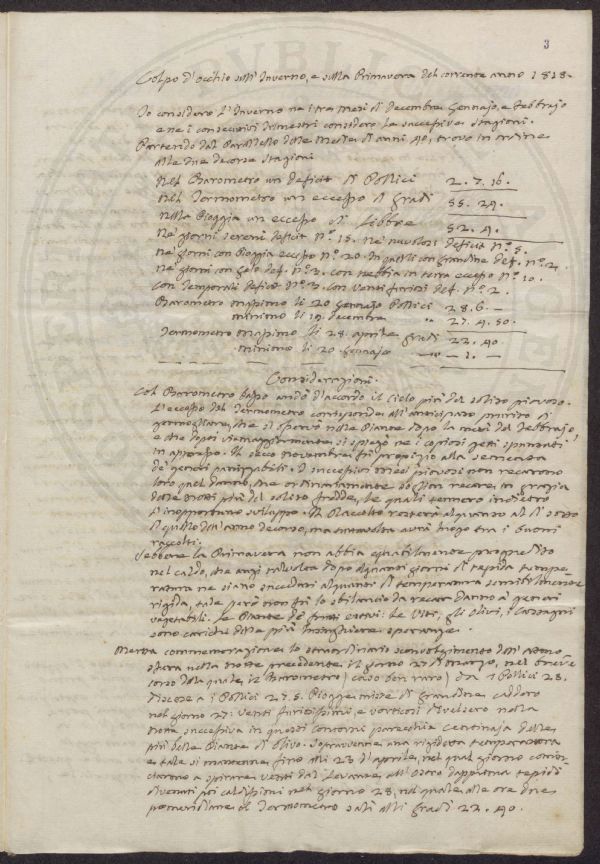 3
Colpo d'occhio sull'Inverno, e sulla Primavera del corrente anno 1818.
Io considero l'Inverno ne i tre mesi di Decembre Gennajo, e Febbrajo
e ne i consecutivi trimestri considero le successive stagioni.
Partendo dal Parallelo delle Medie di anni 40, trovo in ordine
alle due decorse stagioni
Nel Barometro un deficit di Pollici 2. 7. 16.
Nel Termometro un eccesso di gradi 55. 24.
Nella Pioggia un eccesso di Libbre 52. 4.
Ne' giorni sereni deficit N.° 15. Ne' nuvolosi deficit N.° 5.
Ne' giorni con Pioggia eccesso N.° 20. In quelli con grandine def. N.° 2.
Ne' giorni con gelo def. N.° 3. con nebbia in terra eccesso N.° 10.
Con Temporali deficit N.° 3. con venti furiosi def. N.° 2.
Barometro massimo li 20 Gennajo Pollici 28. 6 —
minimo li 19 decembre " 27. 4. 50.
Termometro massimo li 28. aprile gradi 22. 40
minimo li 20 Gennajo — 1. —
Considerazioni.
Col Barometro basso andò d'accordo il cielo più del solito piovoso.
L'eccesso del Termometro corrisponde all'anticipato prurito di
germogliare, che si osservò nelle Piante dopo la metà del Febbrajo
e che dopo si spiegò ne i copiosi getti spuntati
in appresso. Il secco novembre fu propizio alla sementa
de' generi panizzabili. I successivi mesi piovosi non recarono
loro quel danno, che ordinariamente soglion recare, in grazia
delle notti più del solito fredde, le quali tennero indietro
l'inopportuno sviluppo. Il Raccolto resterà alquanto al di sotto
di quello dell'anno decorso, ma tuttavolta avrà luogo tra i buoni
raccolti.
Sebbene la Primavera non abbia egualmente progredito
nel caldo, che anzi talvolta dopo alquanti giorni di tepida tempe-
ratura ne siano succeduti alquanti di temperatura sensibilmente
rigida, tale però non fù lo sbilancio da recar danno ai generi
vegetabili. Le Piante de' frutti estivi: le Viti, gli Olivi, i Castagni
sono cariche delle più lusinghiere speranze.
Merita commemorazione lo straordinario sconvolgimento dell'atmo-
sfera nella notte precedente il giorno 27 di Marzo, nel breve
corso della quale, il Barometro (caso ben raro) da i Pollici 28.
discese a i Pollici 27. 5. Piogge miste di grandine caddero
nel giorno 27: venti furiosissimi, e vorticosi divelsero nella
notte successiva in questi contorni parecchie centinaja delle
più belle Piante di Olivo. Sopravvenne una rigidetta temperatura
e tale si mantenne fino alli 23 d'aprile, nel qual giorno comin-
ciarono a spirare venti dal Levante, all'Ostro dapprima tepidi
divenuti poi caldissimi nel giorno 28, nel quale, alle ore due
pomeridiane, il Termometro salì alli gradi 22. 40.